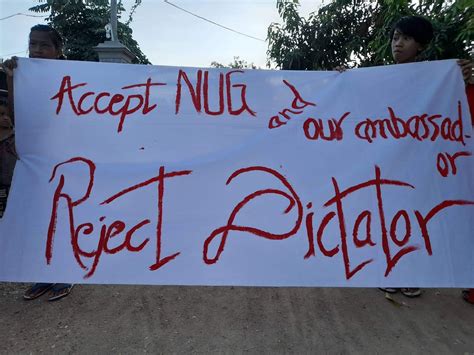 Accept NUG and our ambassad-
or
Reject Dictator